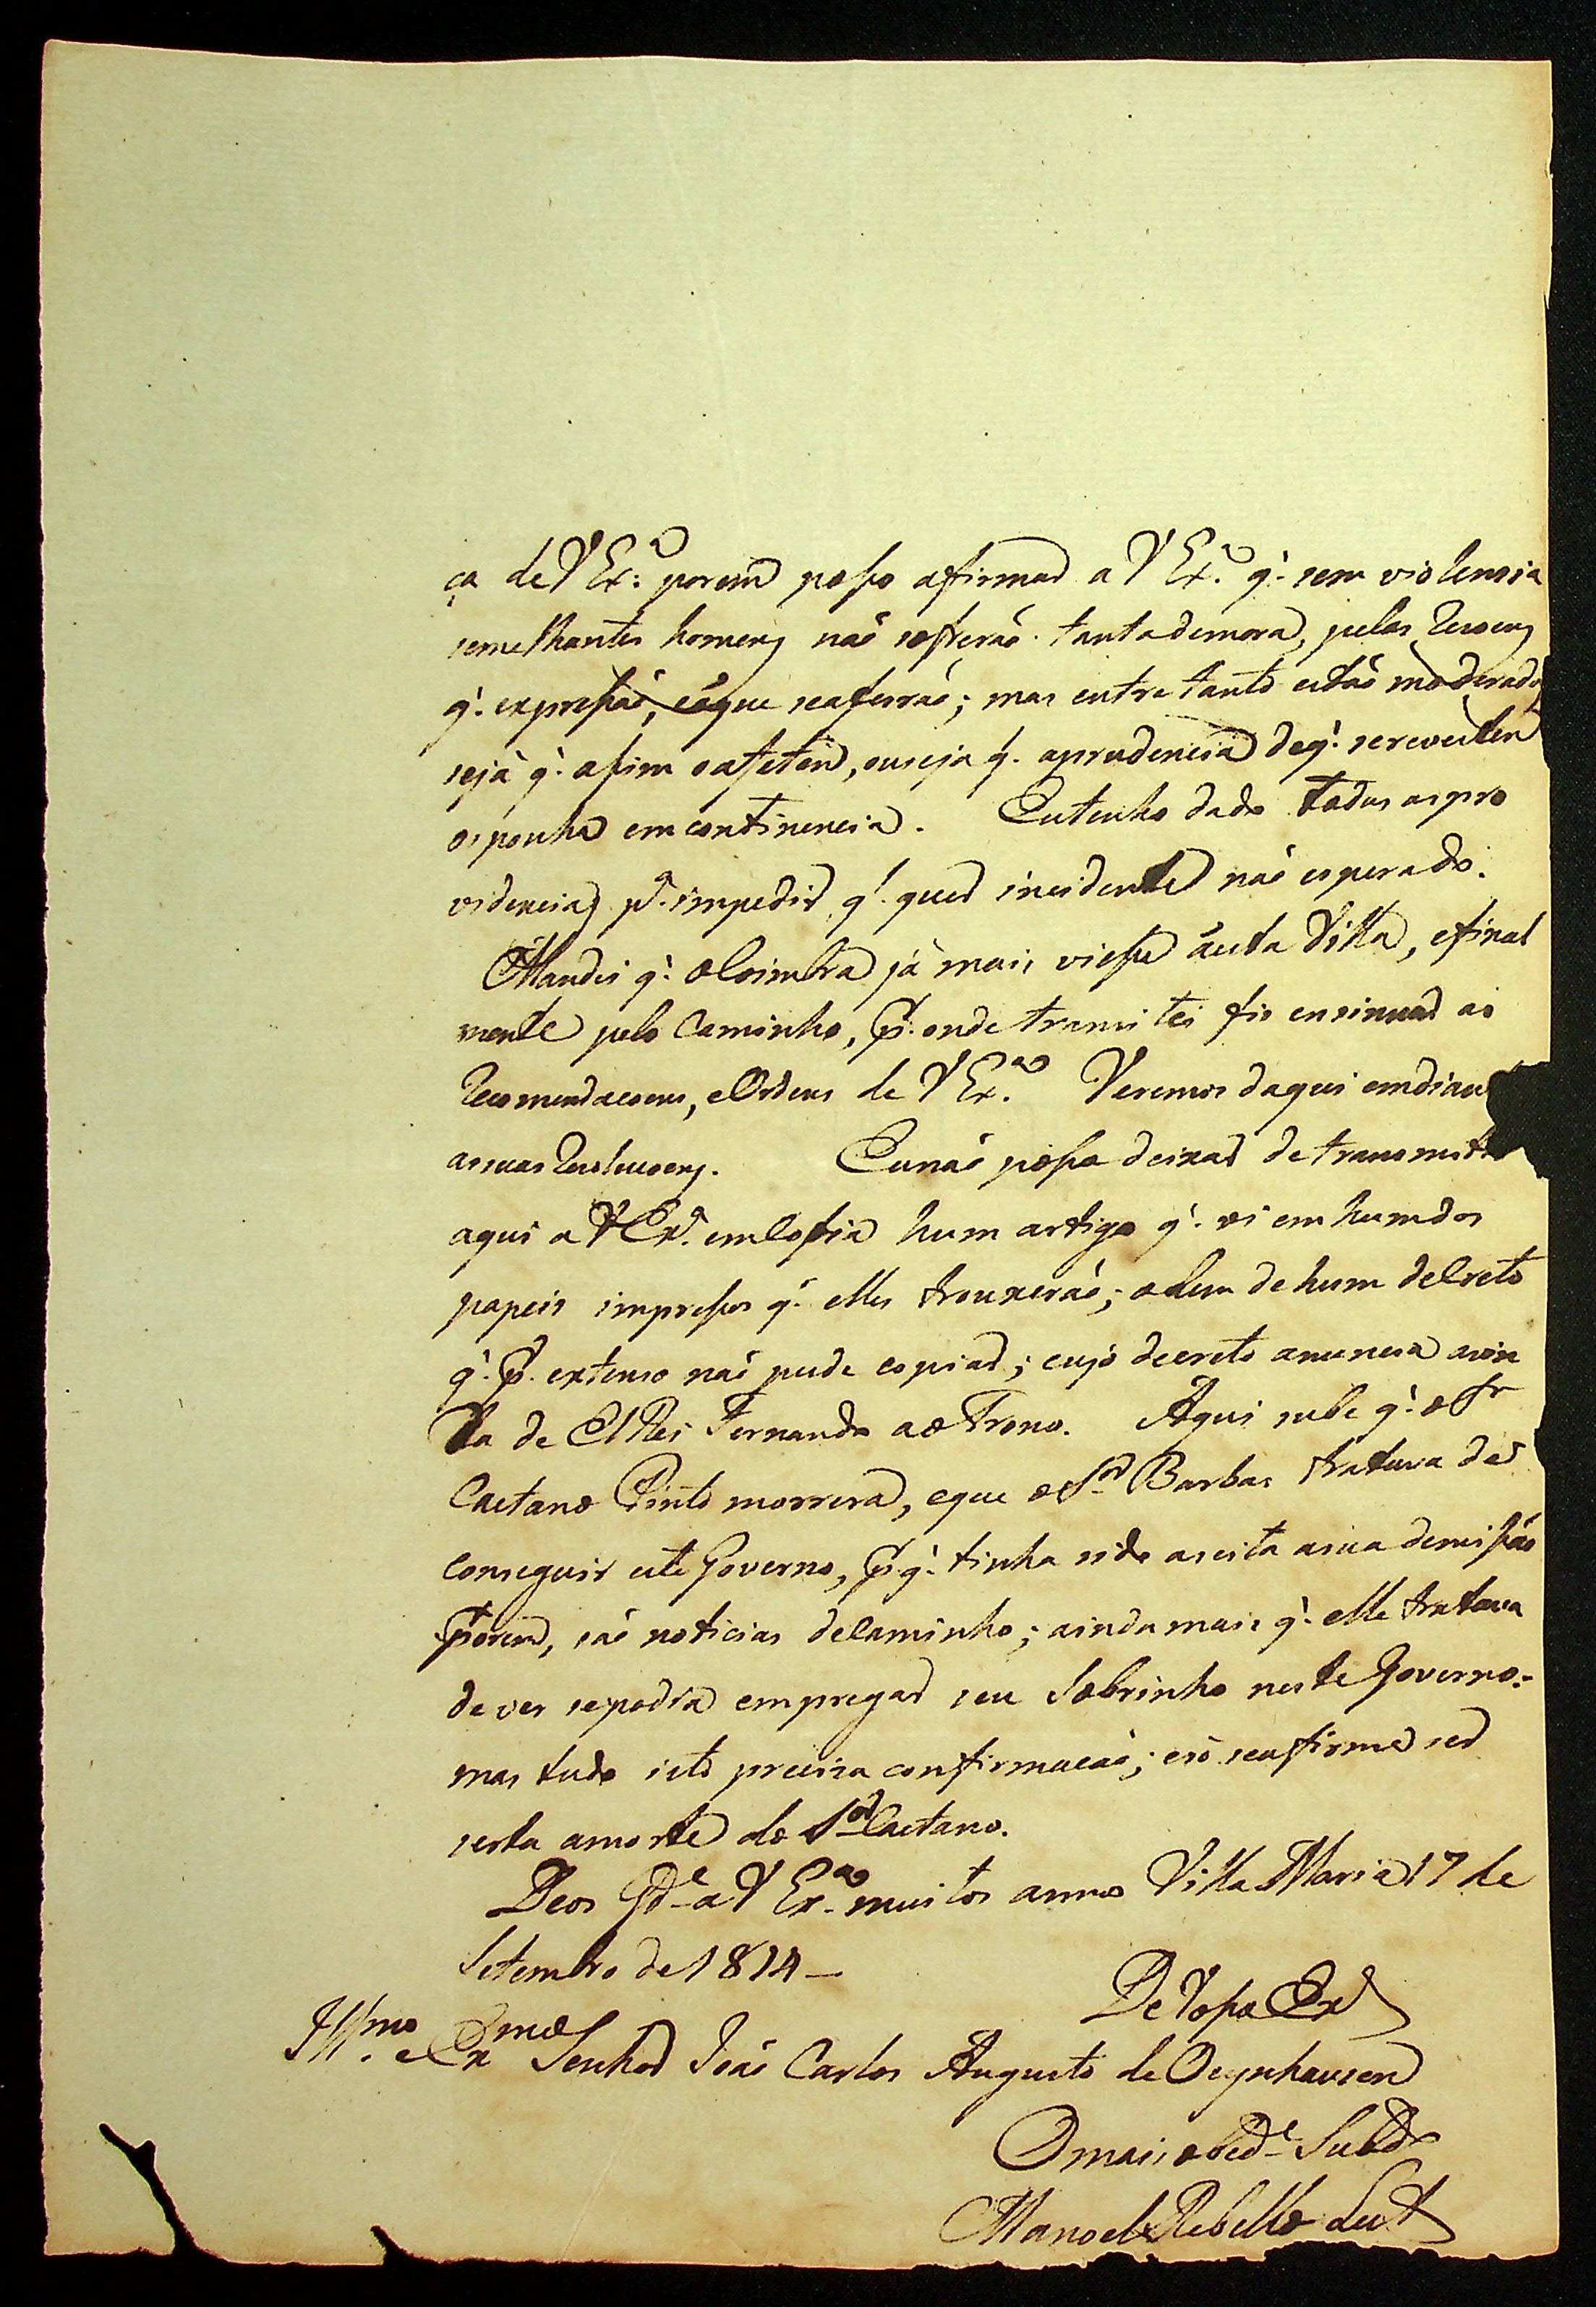 ça de V Ex.ª porem poso afirmar a V Ex.ª q. sem violencia
semelhantes homens naõ sofreraõ tanta demora, pelas
q. expresaõ, eaque seaferraõ; mas entre tanto estaõ moderados
seja q. asim oafetem, ouseja q. aprudencia deq. serevestem
osponha em continencia. Eutenho dado todas aspro
videncias p.ª impedir q. quer incidente naõ esperado.
Mandei q. oCoimbra já mais viese áesta Villa, efinal
mente pelo caminho, p. onde tranzitei fis ensinuar as
Recomendacoens, eOrdens de V Ex.ª Veremos daqui emdian
assuas Rezolucoens. Eunaõ poso deixar de transmitir
aqui a V Ex.ª emCopia hum artigo q. vi em humdos
papeis impresos q. elles trouxeraõ; alem de hum deCreto
q. p. extenso naõ pude copiar; cujo decreto anuncia avin
da de ElRei Fernando ao Trono. Aqui sube q. oSr
Caetano Pinto morrera, eque oSr Barbas tratava de
conseguir este Governo, p.q. tinha sido aseita asua demisaõ
porem, saõ noticias deCaminho; ainda mais q. elle tratava
de ver sepodia empregar seu Sobrinho neste Governo:
mas tudo isto precisa confirmacaõ; esó seafirma ser
serta amorte do Sr Caetano.
Deos Gd.e a V Ex.ª muitos annos Villa Maria 17 de
Setembro de 1814 —
De Vosa Ex.
Ill.mo e Ex.mo Senhor Joaõ Carlos Augusto de Oeynhausen
Omais obed.e Subd.o
Manoel Rebello